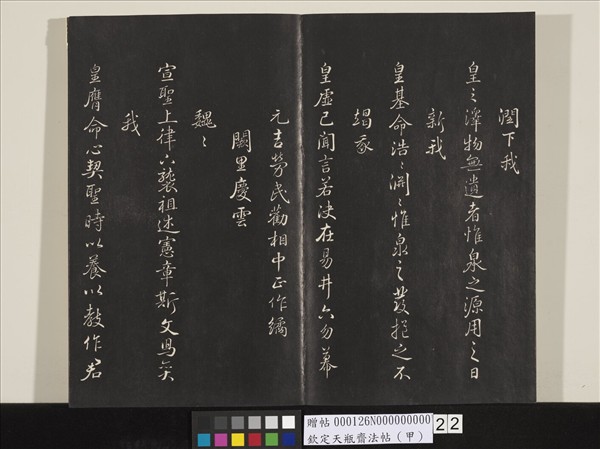 潤下我
皇之澤物無遺者惟泉之源用之日
新我
皇基命浩〻淵〻惟泉之發挹之不
竭我
皇虛己聞言若決在易井六勿幕
元吉勞民勸相中正作繘
闕里慶雲
魏〻
宣聖上律下襲祖述憲章斯文
我
皇膺命心契聖時以養以教作君
贈帖 000126N000000000
欽定天瓶齋法帖（甲）
22